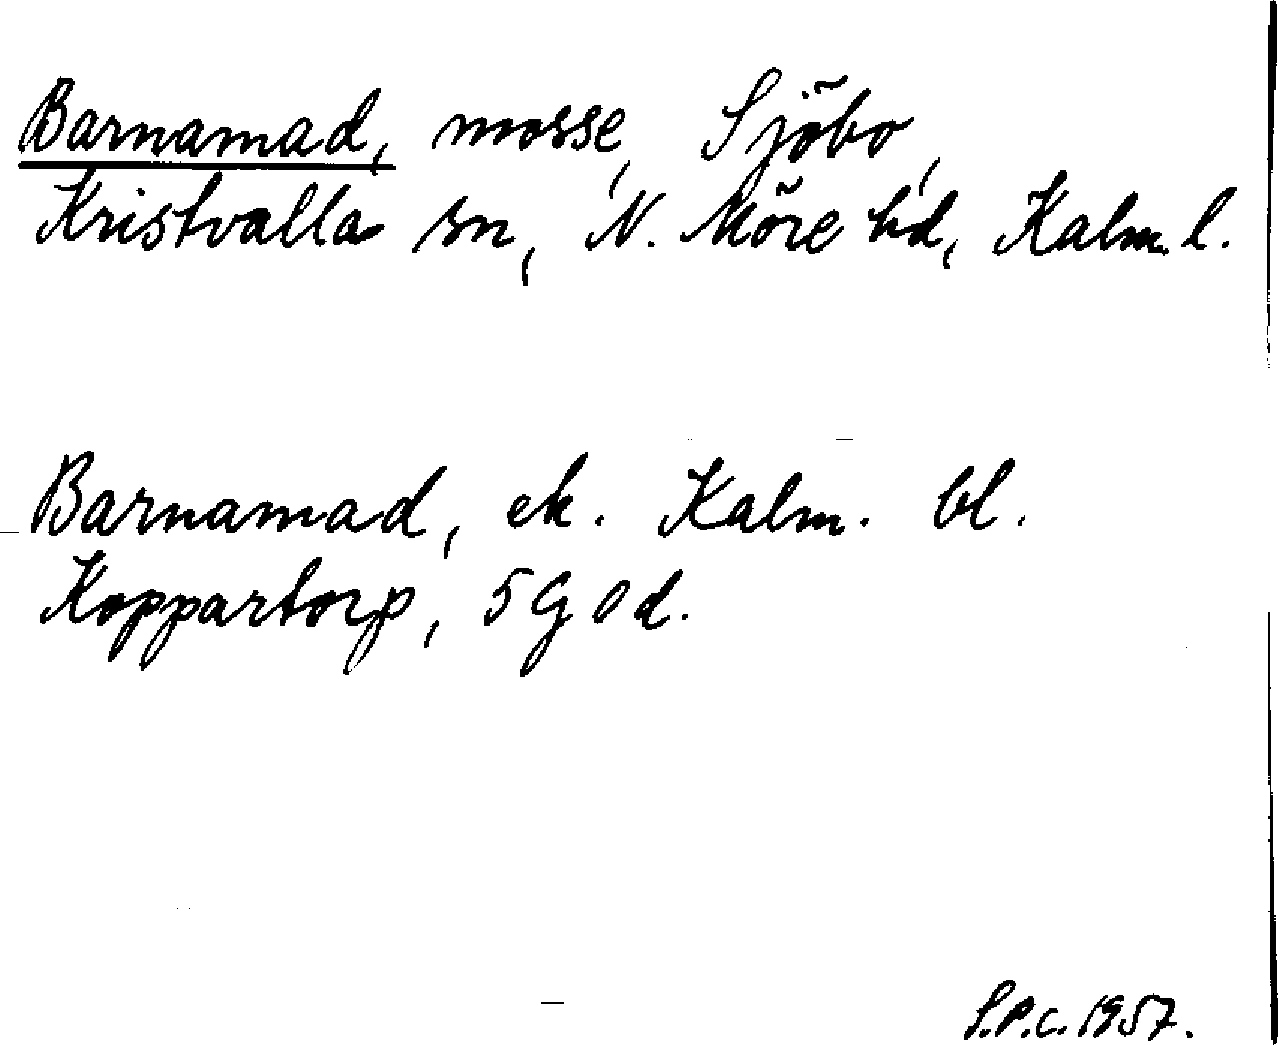 Barnamad, mosse, Sjöbo,
Kristvalla sn, N. Möre hd, Kalm. l.
Barnamad, ek. Kalm. bl.
Koppartorp, 5 G 0 d.
S.P.C. 1957.